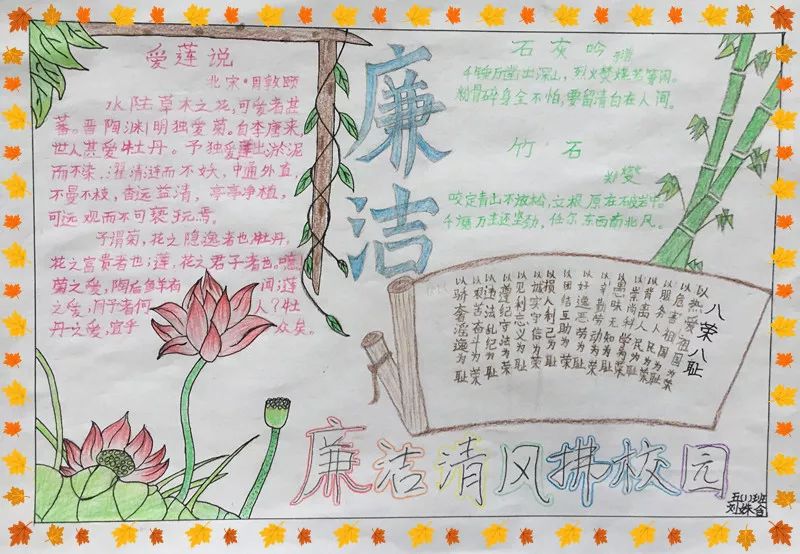 爱莲说
北宋·周敦颐
水陆草木之花,可爱者甚
蕃。晋陶渊明独爱菊。自李唐来
世人甚爱牡丹。予独爱莲出淤泥
而不染,濯清涟而不妖,中通外直,
不曼不枝,香远益清,亭亭净植,
可远观而不可亵玩焉。
予谓菊,花之隐逸者也牡丹,
花之富贵者也;莲,花之君子者也。噫!
菊之爱,陶后鲜有闻;莲
之爱,同予者何人?牡
丹之爱,宜乎众矣。
廉洁
石灰吟
千锤万凿出深山,烈火焚烧若等闲。
粉骨碎身全不怕,要留清白在人间。
竹石
郑燮
咬定青山不放松,立根原在破岩中。
千磨万击还坚劲,任尔东西南北风。
八荣八耻
以热爱祖国为荣
以危害祖国为耻
以服务人民为荣
以背离人民为耻
以崇尚科学为荣
以愚昧无知为耻
以辛勤劳动为荣
以好逸恶劳为耻
以团结互助为荣
以损人利己为耻
以诚实守信为荣
以见利忘义为耻
以遵纪守法为荣
以违法乱纪为耻
以艰苦奋斗为荣
以骄奢淫逸为耻
廉洁清风拂校园
五(1)班
刘姝含